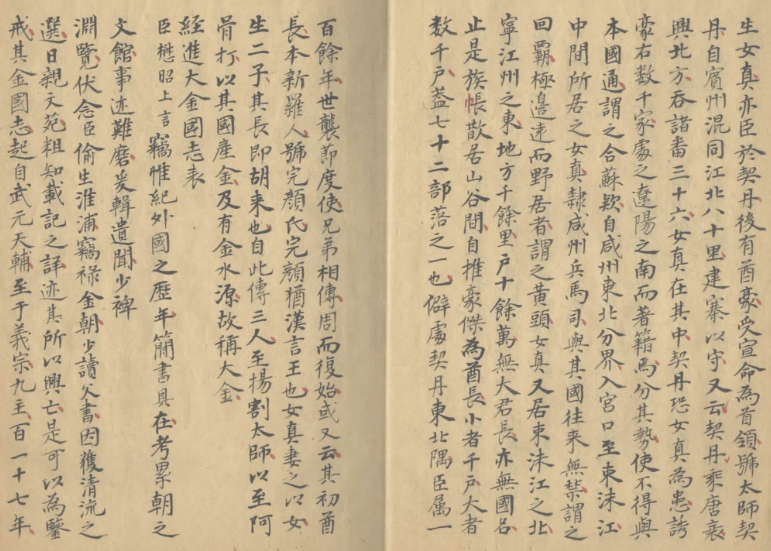 生女真亦臣於契丹後有酋豪受宣命為首領號太師契
丹自賓州混同江北八十里建寨以守又云契丹乘唐衰
興北方吞諸番三十六女真在其中契丹恐女真為患誘
豪右数千家處之遼陽之南而著籍焉分其勢使不得與
本國通謂之合蘇欵自咸州東北分界入宮口至東沬江
中間所居之女真隸咸州兵馬司與其國往来無禁謂之
回霸極邉逺而野居者謂之黃頭女真又居束沬江之北
寧江州之東地方千餘里戸十餘萬無大君長亦無國名
止是族帳散居山谷間自推豪傑為酋長小者千戸大者
数千戸蓋七十二部落之一也僻處契丹東北隅臣属一
百餘年世襲節度使兄弟相傳周而復始或又云其初酋
長本新羅人號完顔氏完顔猶漢言王也女真妻之以女
生二子其長即胡来也自此傳三人至楊割太師以至阿
骨打以其國產金及有金水源故稱大金
經進大金國志表
臣懋昭上言竊惟紀外國之歷年簡書具在考累朝之
文館事迹難磨爰輯遺聞少裨
淵覽伏念臣偷生淮浦竊禄金朝少讀父書因獲清流之
選日親文苑粗知載記之詳迹其所以興亡是可以為鑒
戒其金國志起自武元天輔至于義宗九主百一十七年